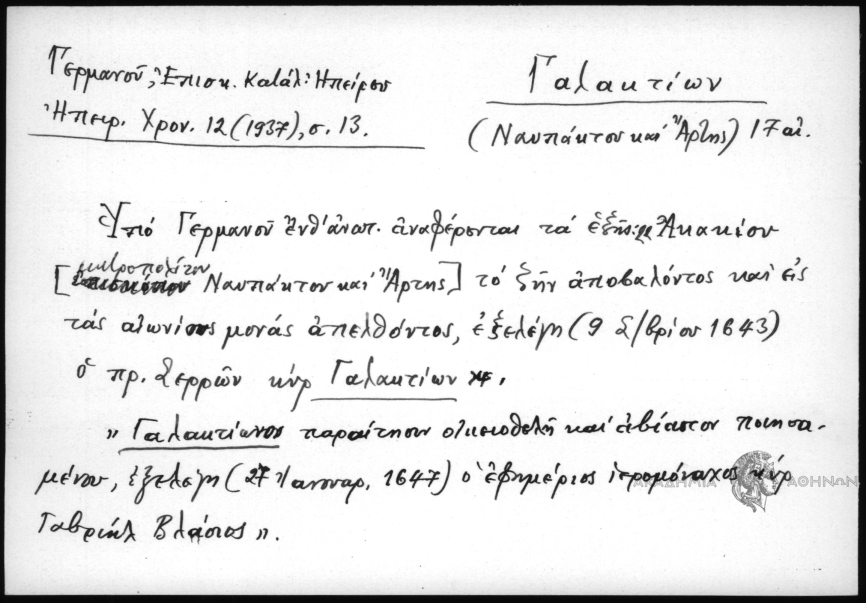 Γερμανοῦ, Ἐπισκ. Κατάλ. Ἠπείρου
Ἠπειρ. Χρον. 12 (1937), σ. 13.
Γαλακτίων
(Ναυπάκτου καί Ἄρτης) 17 αἰ.
Ὑπό Γερμανοῦ ἔνθ' ἀνωτ. ἀναφέρονται τά ἑξῆς: Ἀκακίου
μητροπολίτου
[Ναυπάκτου καί Ἄρτης] τό ζῆν ἀποβαλόντος καί εἰς
τάς αἰωνίους μονάς ἀπελθόντος, ἐξελέγη (9 δ/βρίου 1643)
ὁ πρ. Σερρῶν κύρ Γαλακτίων.
"Γαλακτίωνος παραίτησιν οἰκειοθελῆ καί ἀβίαστον ποιησα-
μένου, ἐξελέγη (27 Ἰανουαρ. 1647) ὁ ἐφημέριος ἱερομόναχος κύρ
Γαβριήλ Βλάσιος".
ΑΚΑΔΗΜΙΑ ΑΘΗΝΩΝ